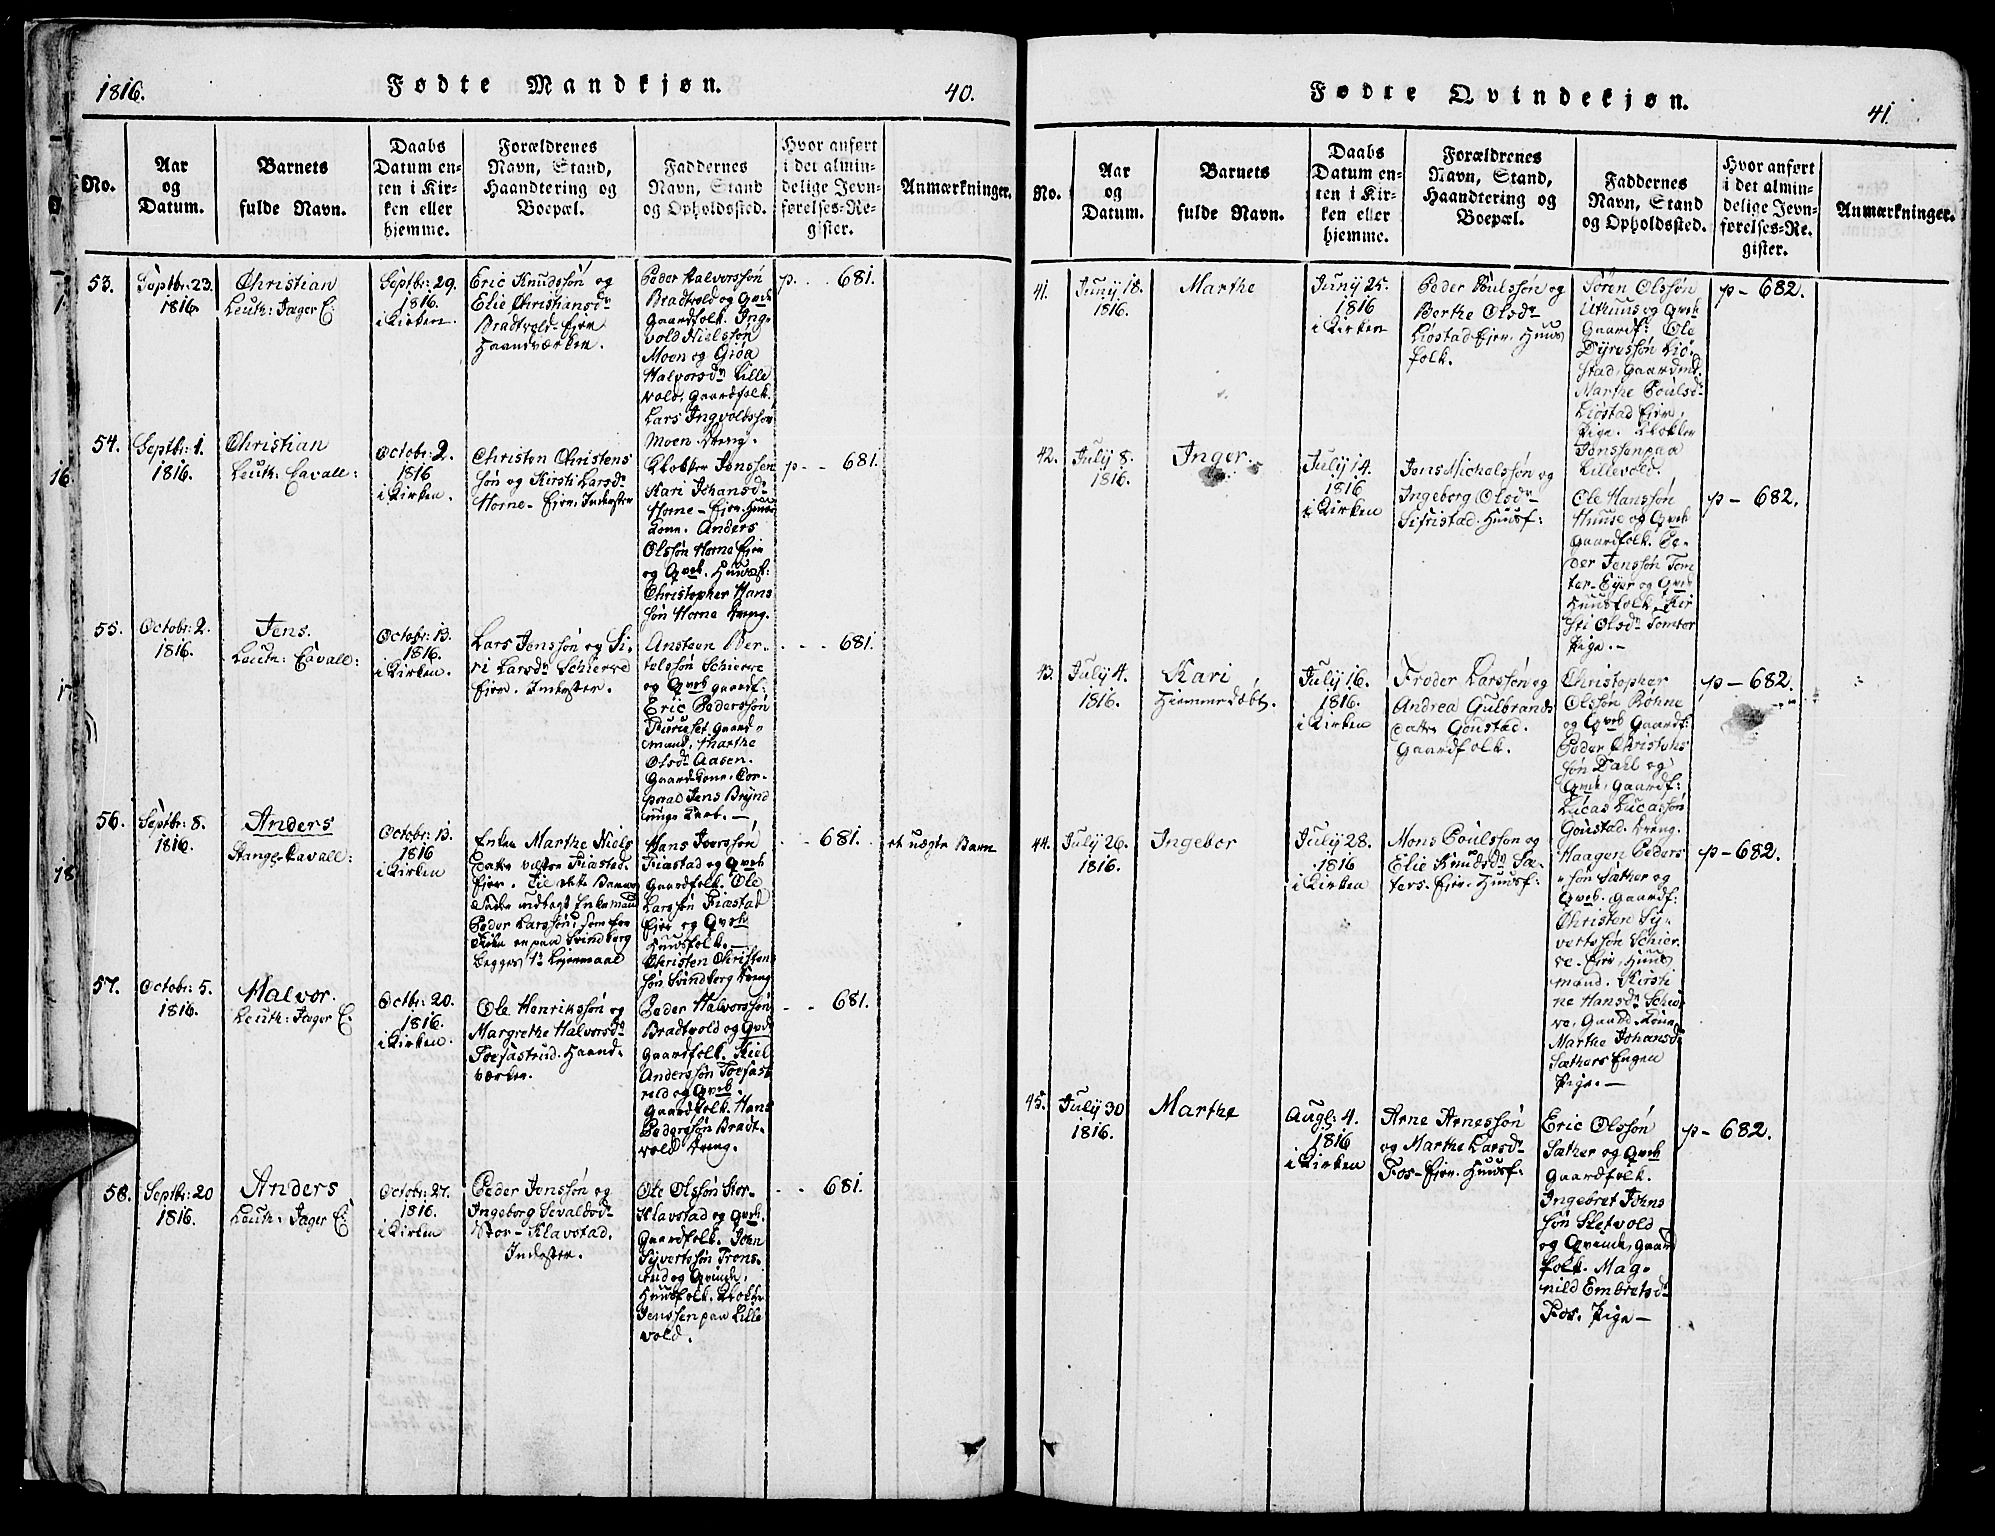 1816.
Fødte Mandkjøn.
40.
No.
Aar
og
Datum.
Barnets
fulde Navn.
Daabs
Datum en-
ten i Kir-
ken eller
hjemme.
Forældrenes
Navn, Stand,
Haandtering og
Boepæl.
Faddernes
Navn, Stand
og Opholdssted.
Hvor anført
i det almin-
delige Jevn-
førelses-Re-
gister.
Anmærkninger.
53.
Septbr: 23.
1816.
Christian
Leuth: Jæger C:
Septbr: 29.
1816.
i Kirken.
Eric Knudssøn og
Elie Christiansdr
Bradtvold Eier
Haandværker.
Peder Halvorssøn
Bradtvold og Qvek
Gaardfolk. Ing-
vold Nielssøn
Moen og Gida
Halvorsdr Lille
vold, Gaardfolk.
Lars Ingvoldssøn
Moen Dreng.
p. . . 681.
54.
Septbr: 1.
1816.
Christian
Leuth: Cavall:
Octobr: 2.
1816
i Kirken.
Christen Christens
søn og Kirsti Larsdr
Horne - Eier, Inderster
Klokker Jenssen
Kari Johansdr
Horne - Eier. Huus
kone. Anders
Olssøn Horne Eier
og Qvek. Huusf:
Christopher Hans
søn Horne Dreng.
p - - 681.
55.
Octobr: 2.
1816.
Jens.
Leuth: Cavall:
Octobr: 13.
1816.
i Kirken.
Lars Jenssøn og Si-
ri Larsdr Schierve
Eier. Inderster.
Ansteen Ber-
telssøn Schierve
og Qvek gaardf:
Eric Pederssøn
Furuset Gaard-
mand, Marthe
Olsdr Aasen.
Gaardkone, Cor-
poral Jens Brynd
- - - 681.
56.
Septbr: 8.
1816.
Anders
Stange Cavall:
Octobr: 13.
1816
i Kirken
Enken Marthe Niels
datter Fiastad
Eier. Til dette Barns
Fader udlagt Enkemand
Peder Larssøn, som
Svindberg
begges 1ste Leiermaal
Hans Iverssøn
Fiastad og Qvek
Gaardfolk. Ole
Larssøn Fiæstad
Eier og Qvek
Huusfolk. -
Christen Christens
søn Svindberg Dreng
- - 681.
et uægte Barn
57.
Octobr: 5.
1816.
Halvor.
Leuth: Jæger C:
Octbr: 20.
1816.
i Kirken.
Ole Henrikssøn og
Margrethe Halvorsdr
Toefastrud. Haand-
værker.
Peder Halvorssøn
Bradtvold og Qvek
Gaardfolk. Kiel
Anderssøn Toefast
rud og Qvek.
Gaardfolk. Hans
Pederssøn Bradt-
vold Dreng.
- - 681.
58.
Septbr: 20
1816.
Anders
Leuth: Jæger C:
Octobr: 27.
1816.
i Kirken
Peder Jenssøn og
Ingeborg Sevaldsdr
Stor-Klavstad.
Inderster.
Ole Olssøn Stor-
Klavstad og Qvek.
Gaardfolk. John
Syvertssøn Trons-
tad og Qvinde,
Huusfolk. Klokker
Jenssen paa Lille
vold.
- - 681.
Fødte Qvindekjøn.
41.
No.
Aar
og
Datum.
Barnets
fulde Navn.
Daabs
Datum en-
ten i Kir-
ken eller
hjemme.
Forældrenes
Navn, Stand,
Haandtering og
Boepæl.
Faddernes
Navn, Stand
og Opholdssted.
Hvor anført
i det almin-
delige Jevn-
førelses-Re-
gister.
Anmærkninger.
41.
Juny 18.
1816.
Marthe
Juny 25.
1816
i Kirken
Peder Poulssøn og
Berthe Olsdr
Liøstad Eier. Huus
folk.
Søren Olssøn
Uthuus og Qvek
Gaardf: Ole
Dyressøn Liø-
stad, Gaardmd:
Marthe Poulsdr
Liøstad Eier,
Pige. Klokker
Jenssen paa
Lillevold.
p - 682.
42.
July 8.
1816.
Inger.
July 14.
1816
i Kirken
Jens Michelssøn og
Ingeborg Olsdr
Sifristad. Huusf:
Ole Hanssøn
Huuse og Qvek
Gaardfolk. Pe-
der Jenssøn Tom
ter-Eyer og Qvek
Huusfolk. Kir
sti Olsdr Tomter
Pige. -
p - 682.
43.
July 4.
1816.
Kari
Hiemmedøbt.
July 16.
1816.
i Kirken
Froder Larssøn og
Andrea Gulbrands
datter Goustad.
Gaardfolk.
Christopher
Olssøn Røhne
og Qvek Gaardf:
Peder Christophs
søn Dael og
Qvek, Gaardf:
Lucas Lucassøn
Goustad. Dreng.
p - 682.
44.
July 26.
1816.
Ingebor
July 28.
1816
i Kirken
Mons Poulssøn og
Elie Knudsdr Sæ-
ters. Eier. Huusf:
Haagen Peders
søn Sæther og
Qvek. Gaardf:
Christen Sy-
vertssøn Schier
ve. Eier, Huus
mand. Kirsti
ne Hansdr Schier
ve, Gaard-kone
Marthe Johansdr
Sæthers Engen
Pige. -
p - 682.
45.
July 30
1816.
Marthe
Augt: 4.
1816
i Kirken
Arne Arnessøn
og Marthe Larsdr
Fos-Eier. Huusf:
Eric Olssøn
Sæther og Qvek
Gaardfolk.
Ingebret Johns
søn Sletvold
og Qvinde, Gaard
folk. Mag-
nild Embretsdr
Fos. Pige -
p - 682.